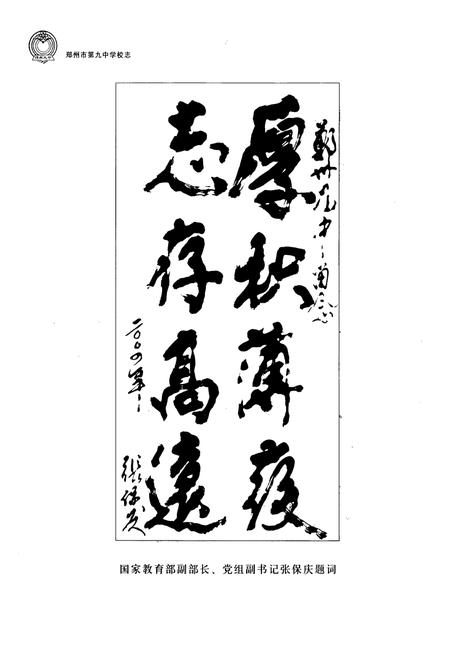 郑州市第九中学校志
鄭州九中留念
厚积薄发
志存高遠
二〇〇四年
張保庆
国家教育部副部长、党组副书记张保庆题词